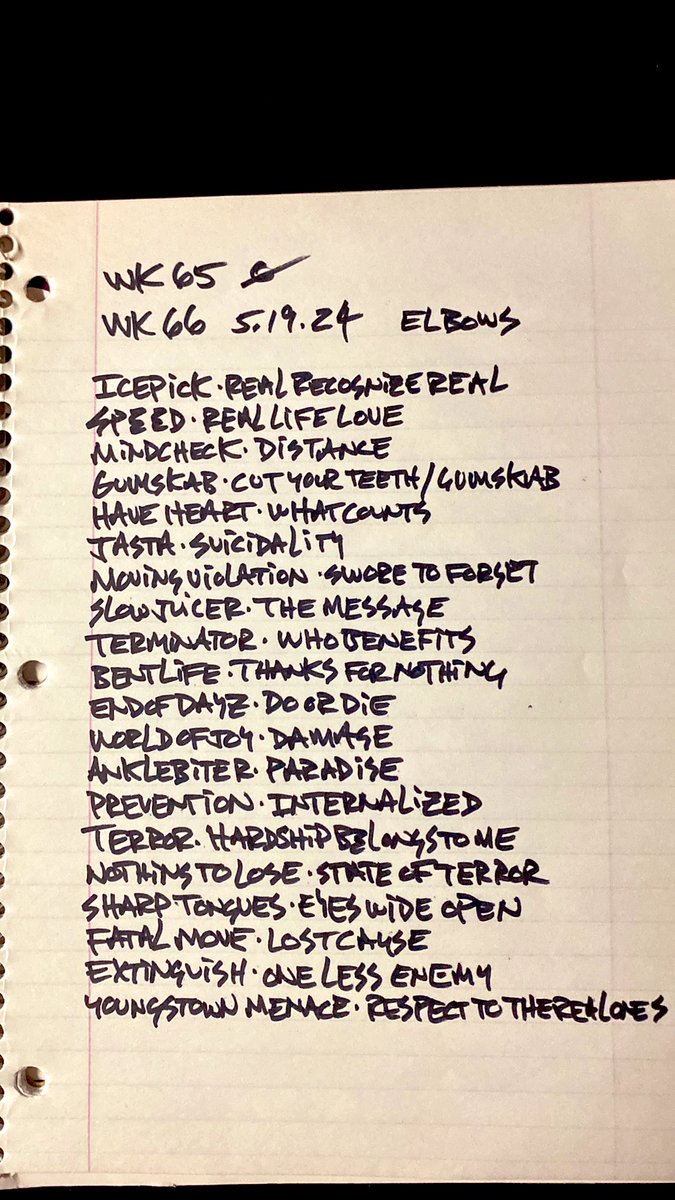 WK 65
WK 66 5.19.24 ELBOWS
ICEPICK · REAL RECOGNIZE REAL
SPEED · REAL LIFE LOVE
MINDCHECK · DISTANCE
GUMSKAB · CUT YOUR TEETH / GUMSKAB
HAVE HEART · WHAT COUNTS
JASTA · SUICIDALITY
MOVING VIOLATION · SWORE TO FORGET
SLOW JUICER · THE MESSAGE
TERMINATOR · WHO BENEFITS
BENT LIFE · THANKS FOR NOTHING
END OF DAYZ · DO OR DIE
WORLD OF JOY · DAMAGE
ANKLEBITER · PARADISE
PREVENTION · INTERNALIZED
TERROR · HARDSHIP BELONGS TO ME
NOTHING TO LOSE · STATE OF TERROR
SHARP TONGUES · EYES WIDE OPEN
FATAL MOVE · LOST CAUSE
EXTINGUISH · ONE LESS ENEMY
YOUNGSTOWN MENACE · RESPECT TO THE REAL ONES